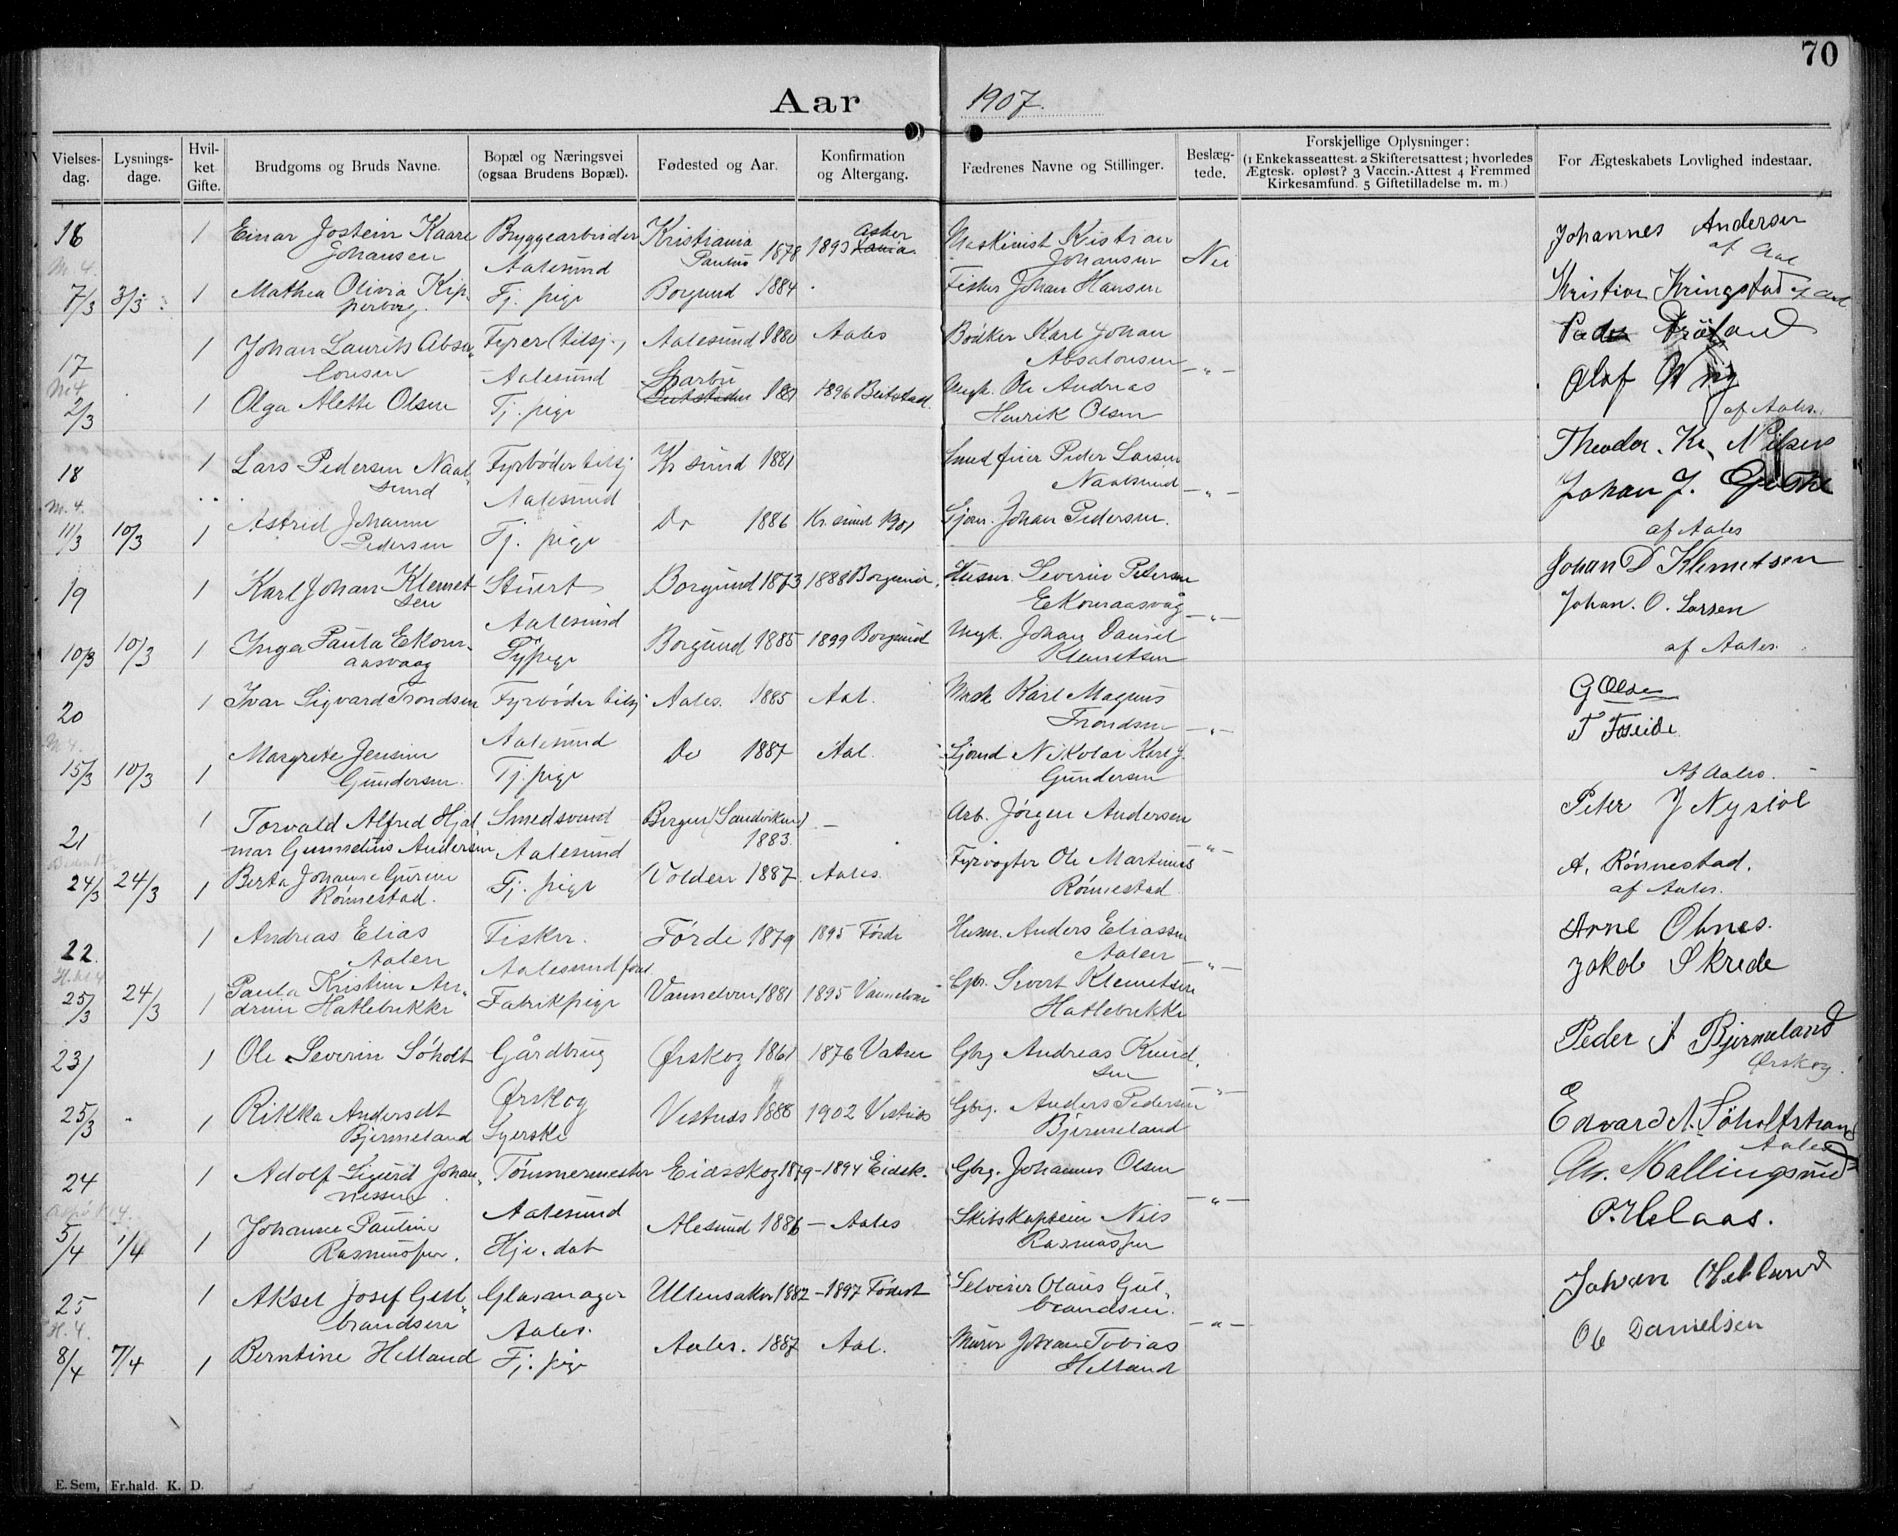 70
Aar 1907.
Vielses-dag. Lysnings-dage. Hvilket Gifte. Brudgoms og Bruds Navne. Bopæl og Næringsvei (ogsaa Brudens Bopæl). Fødested og Aar. Konfirmation og Altergang. Fædrenes Navne og Stillinger. Beslægtede. Forskjellige Oplysninger: (1 Enkekasseattest. 2 Skifteretsattest; hvorledes Ægtesk. opløst? 3 Vaccin.-Attest 4 Fremmed Kirkesamfund. 5 Giftetilladelse m. m.) For Ægteskabets Lovlighed indestaar.
16 1 Einar Jostein Kaare Bryggearbeider Kristiania 1878 1893 Asker Maskinist Kristian Nei Johannes Andersen
Johansen Aalesund Paulus Johansen af Aal
7/3 3/3 1 Mathea Olivia Kip- Tj. pige Borgund 1884 Fisker Johan Hansen Kristian Kringstad af Aal
perberg.
17 1 Johan Laurits Absa- Fyrer (tilsj.) Aalesund 1880 Aales Bødker Karl Johan Peder
lonsen Aalesund Sparbu Absalonsen — " — Olaf
2/3 1 Olga Alette Olsen Tj. pige 1881 1896 Beitstad. Ole Andreas
Henrik Olsen af Aales.
18 1 Lars Pedersen Naal- Fyrbøder tilsj Kr sund 1881 Peder Larsen Theodor. Kr. Nilsen
sund Aalesund Naalsund — " — Johan J.
11/3 10/3 1 Astrid Johanne Tj. pige Do 1886 Kr. sund 1901 Sjøm. Johan Pedersen.
Pedersen af Aales
19 1 Karl Johan Klemet- Stuert Borgund 1873 1888 Borgund Husm. Severin Petersen Johan D Klemetsen
sen Aalesund Ekornaasvåg — " — Johan. O. Larsen
10/3 10/3 1 Inga Paula Ekorn- Tj. pige Borgund 1885 1899 Borgund Johan Daniel
aasvaag Klemetsen af Aales.
20 1 Ivar Sigvard Trondsen Fyrbøder tilsj Aales. 1885 Aal. Mask Karl Magnus G Olsen
Aalesund Trondsen — " — T Foseide
15/3 10/3 1 Margrete Jensine Tj. pige Do 1887 Aal. Sjømd Nikolai Karl J.
Gundersen. Gundersen Af Aales.
21 1 Torvald Alfred Hjal- Smedsvend Bergen (Sandviken) — Arb. Jørgen Andersen Peter J Nystøl
mar Gunnelius Andersen Aalesund 1883. — " —
24/3 24/3 1 Berta Johanne Gurine Tj. pige Volden 1887 Aales. Fyrvogter Ole Martinus A. Rønnestad.
Rønnestad. Rønnestad. af Aales.
22. 1 Andreas Elias Fisker. Førde 1879 1895 Førde Husm. Anders Eliassen Arne Olnes.
Aalen Aalesund Aalen — " — Jakob Skrede
25/3 24/3 1 Paula Kristine An- Fabrikpige Vannelven 1881 1895 Vannelven Gbr. Sivert Klemetsen
drine Hatlebrekke Hatlebrekke
23 1 Ole Severin Søholt Gårdbrug Ørskog 1861 1876 Vatne Gbrg Andreas Knud- Peder A Bjermeland
Ørskog sen — " — Ørskog.
25/3 1 Rikka Andersdt Syerske Vestnes 1888 1902 Vestnes Gbrg. Anders Pedersen Edvard A. Søholtstrand
Bjermeland Bjermeland Aales
24 1 Adolf Sigurd Johan- Tømmermester Eidsskog 1879 - 1894 Eidsk. Gbrg. Johannes Olsen Mallingsund
nessen. Aalesund — " —
5/4 1/4 1 Johanne Pauline Hje. dat Alesund 1886 — Aales Skibskaptein Nils O. Helaas.
Rasmussen. Rasmussen
25 1 Aksel Josef Gul- Glasmager Ullensaker 1882 - 1897 Fødest Selveier Olaus Gul- Johan Hetlund
brandsen Aales. brandsen. — " —
8/4 7/4 1 Berntine Helland Tj. pige Aales. 1887 Aal. Murer Johan Tobias Ole Danielsen
Helland
E. Sem, Fr.hald. K. D.